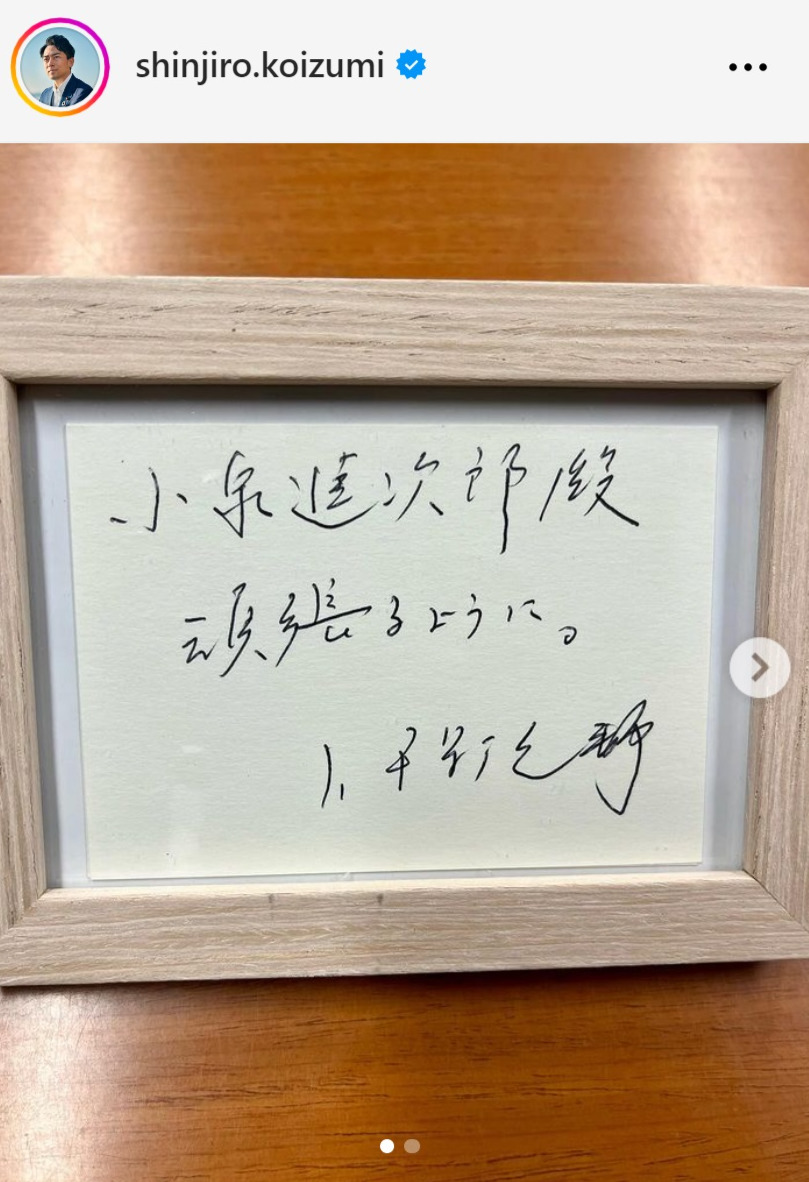 shinjiro.koizumi
小泉進次郎殿
頑張るように。